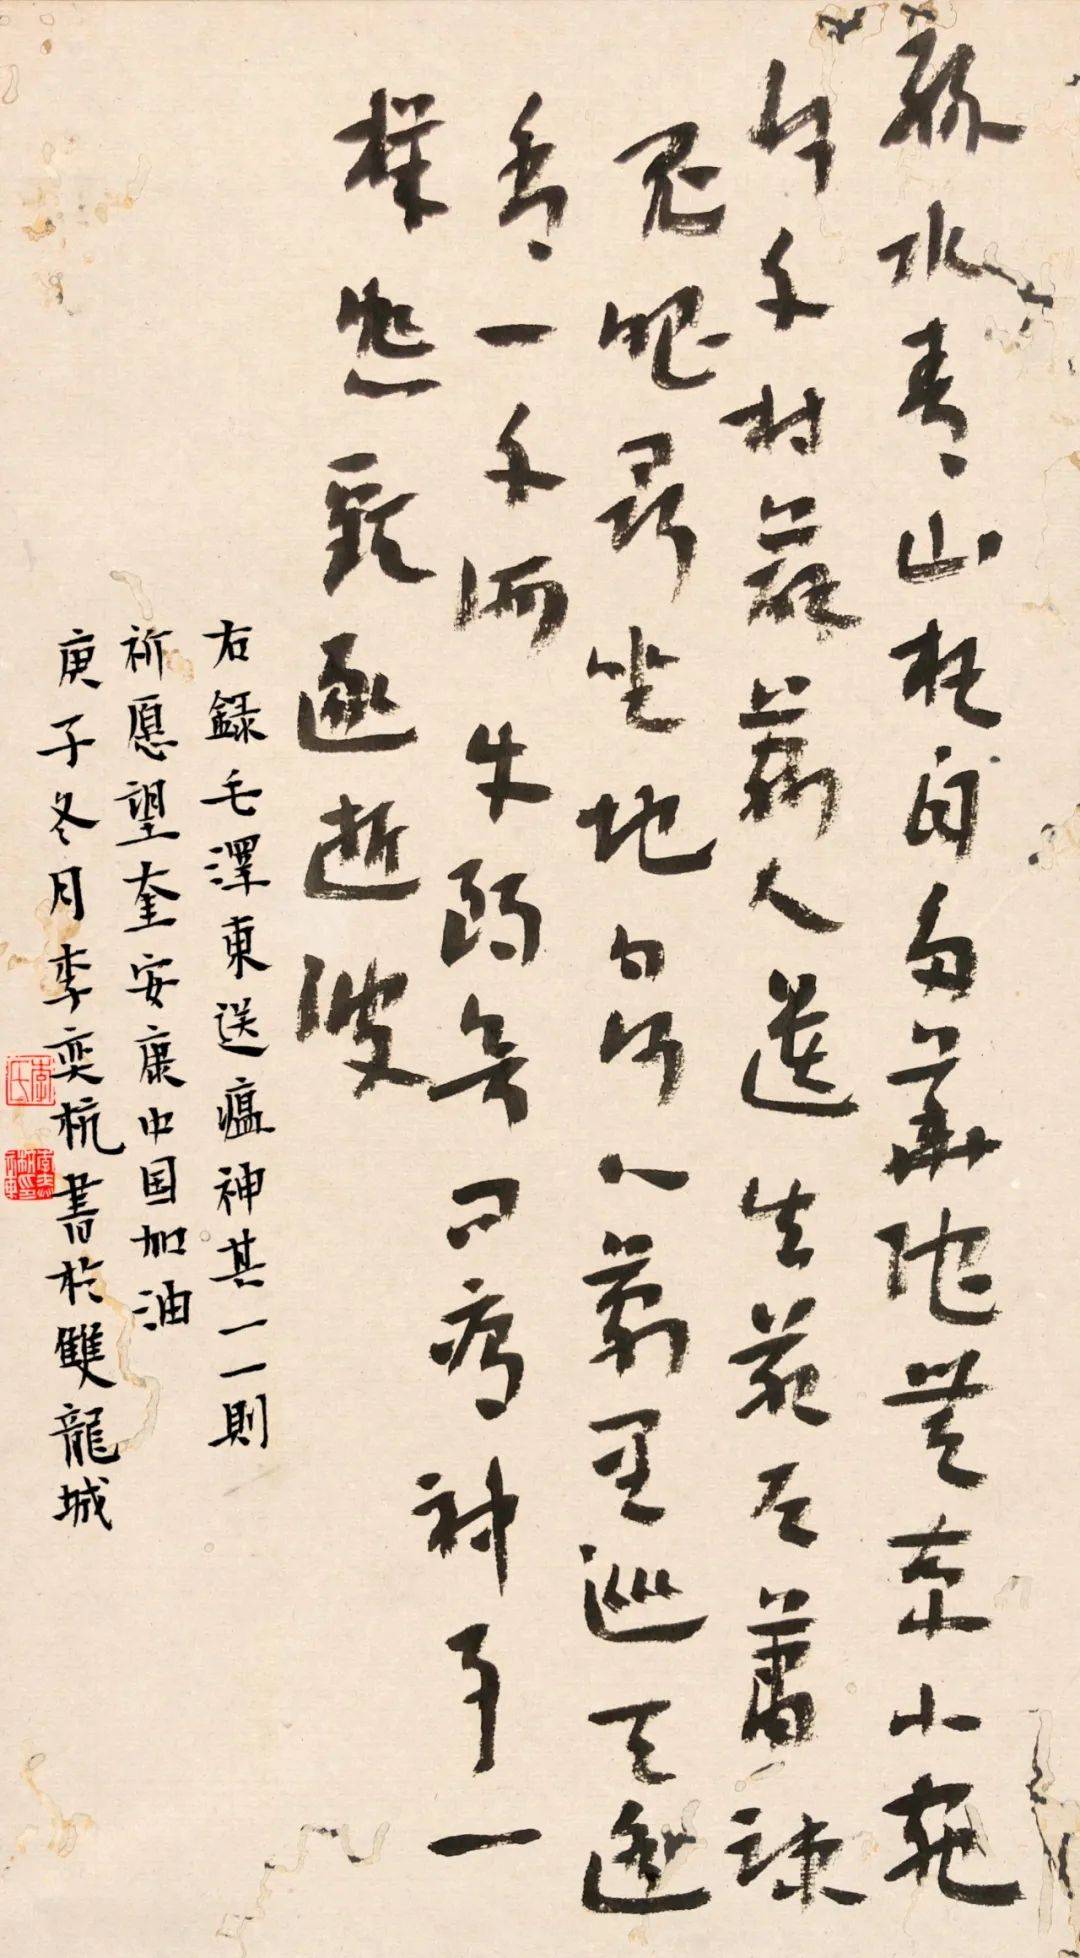 綠水青山枉自多華陀無奈小蟲
何千村薜荔人遺矢萬戶蕭疎
鬼唱歌坐地日行八萬里巡天遙
看一千河牛郎欲問瘟神事一
樣悲歡逐逝波
右錄毛澤東送瘟神其一一則
祈愿望奎安康中国加油
庚子冬月李奕杭書於雙龍城
李氏